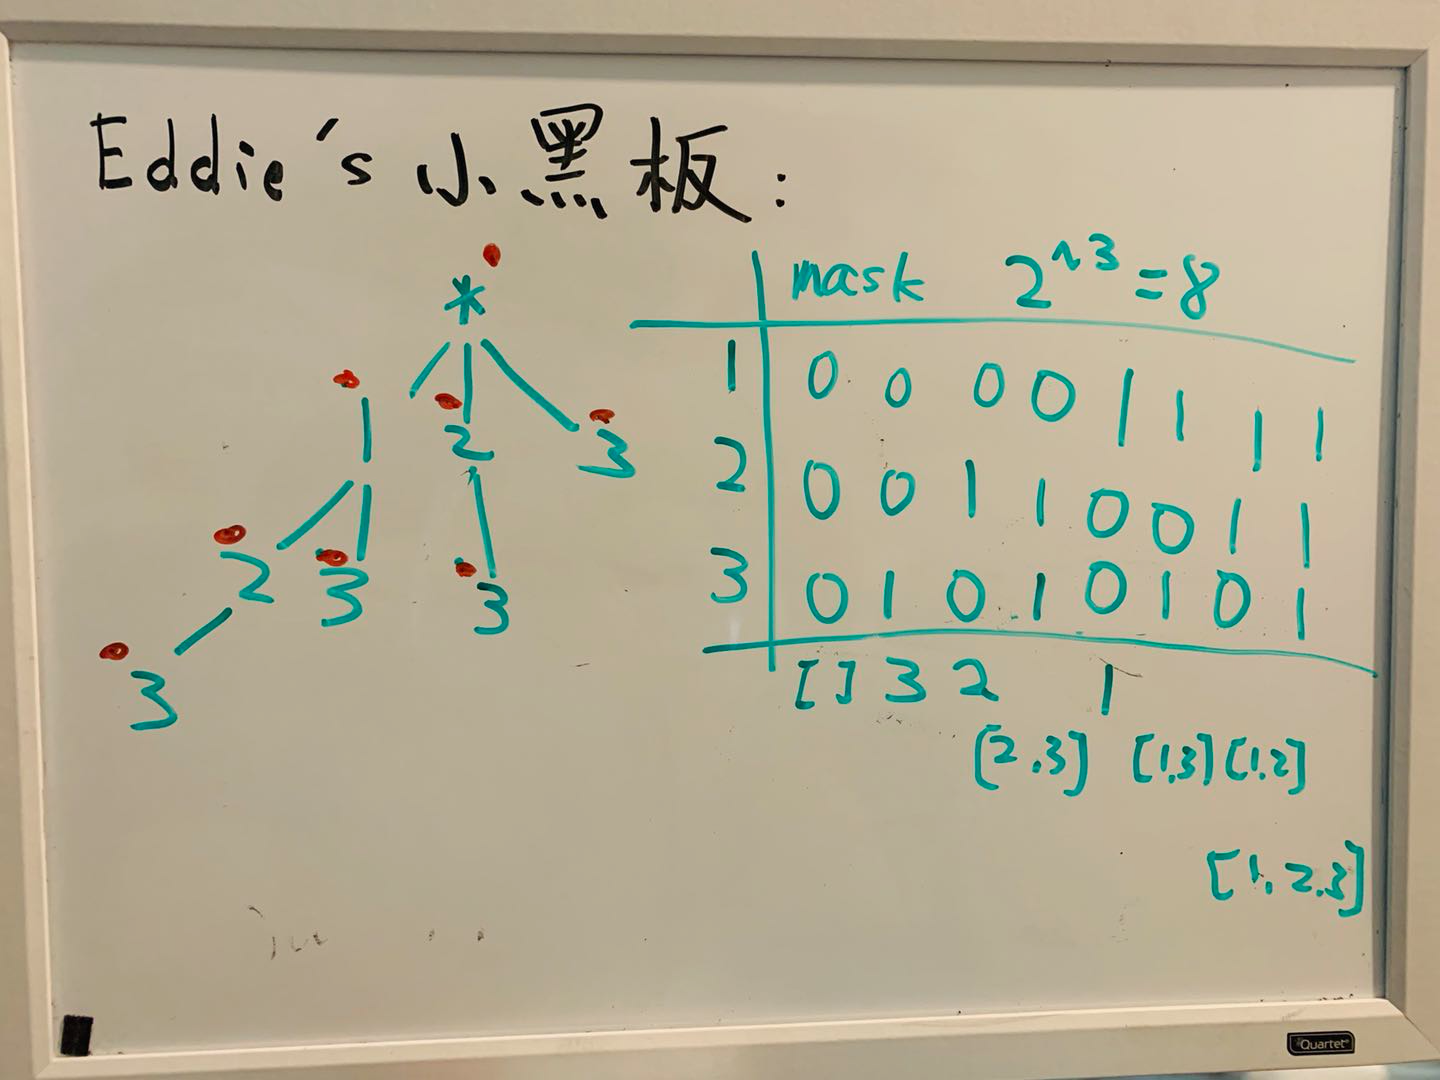 Eddie's 小黑板:
*
1 2 3
2 3 3
3
mask 2^3=8
1 0 0 0 0 1 1 1 1
2 0 0 1 1 0 0 1 1
3 0 1 0 1 0 1 0 1
[] 3 2 1
[2.3] [1,3] [1,2]
[1,2.3]
Quartet